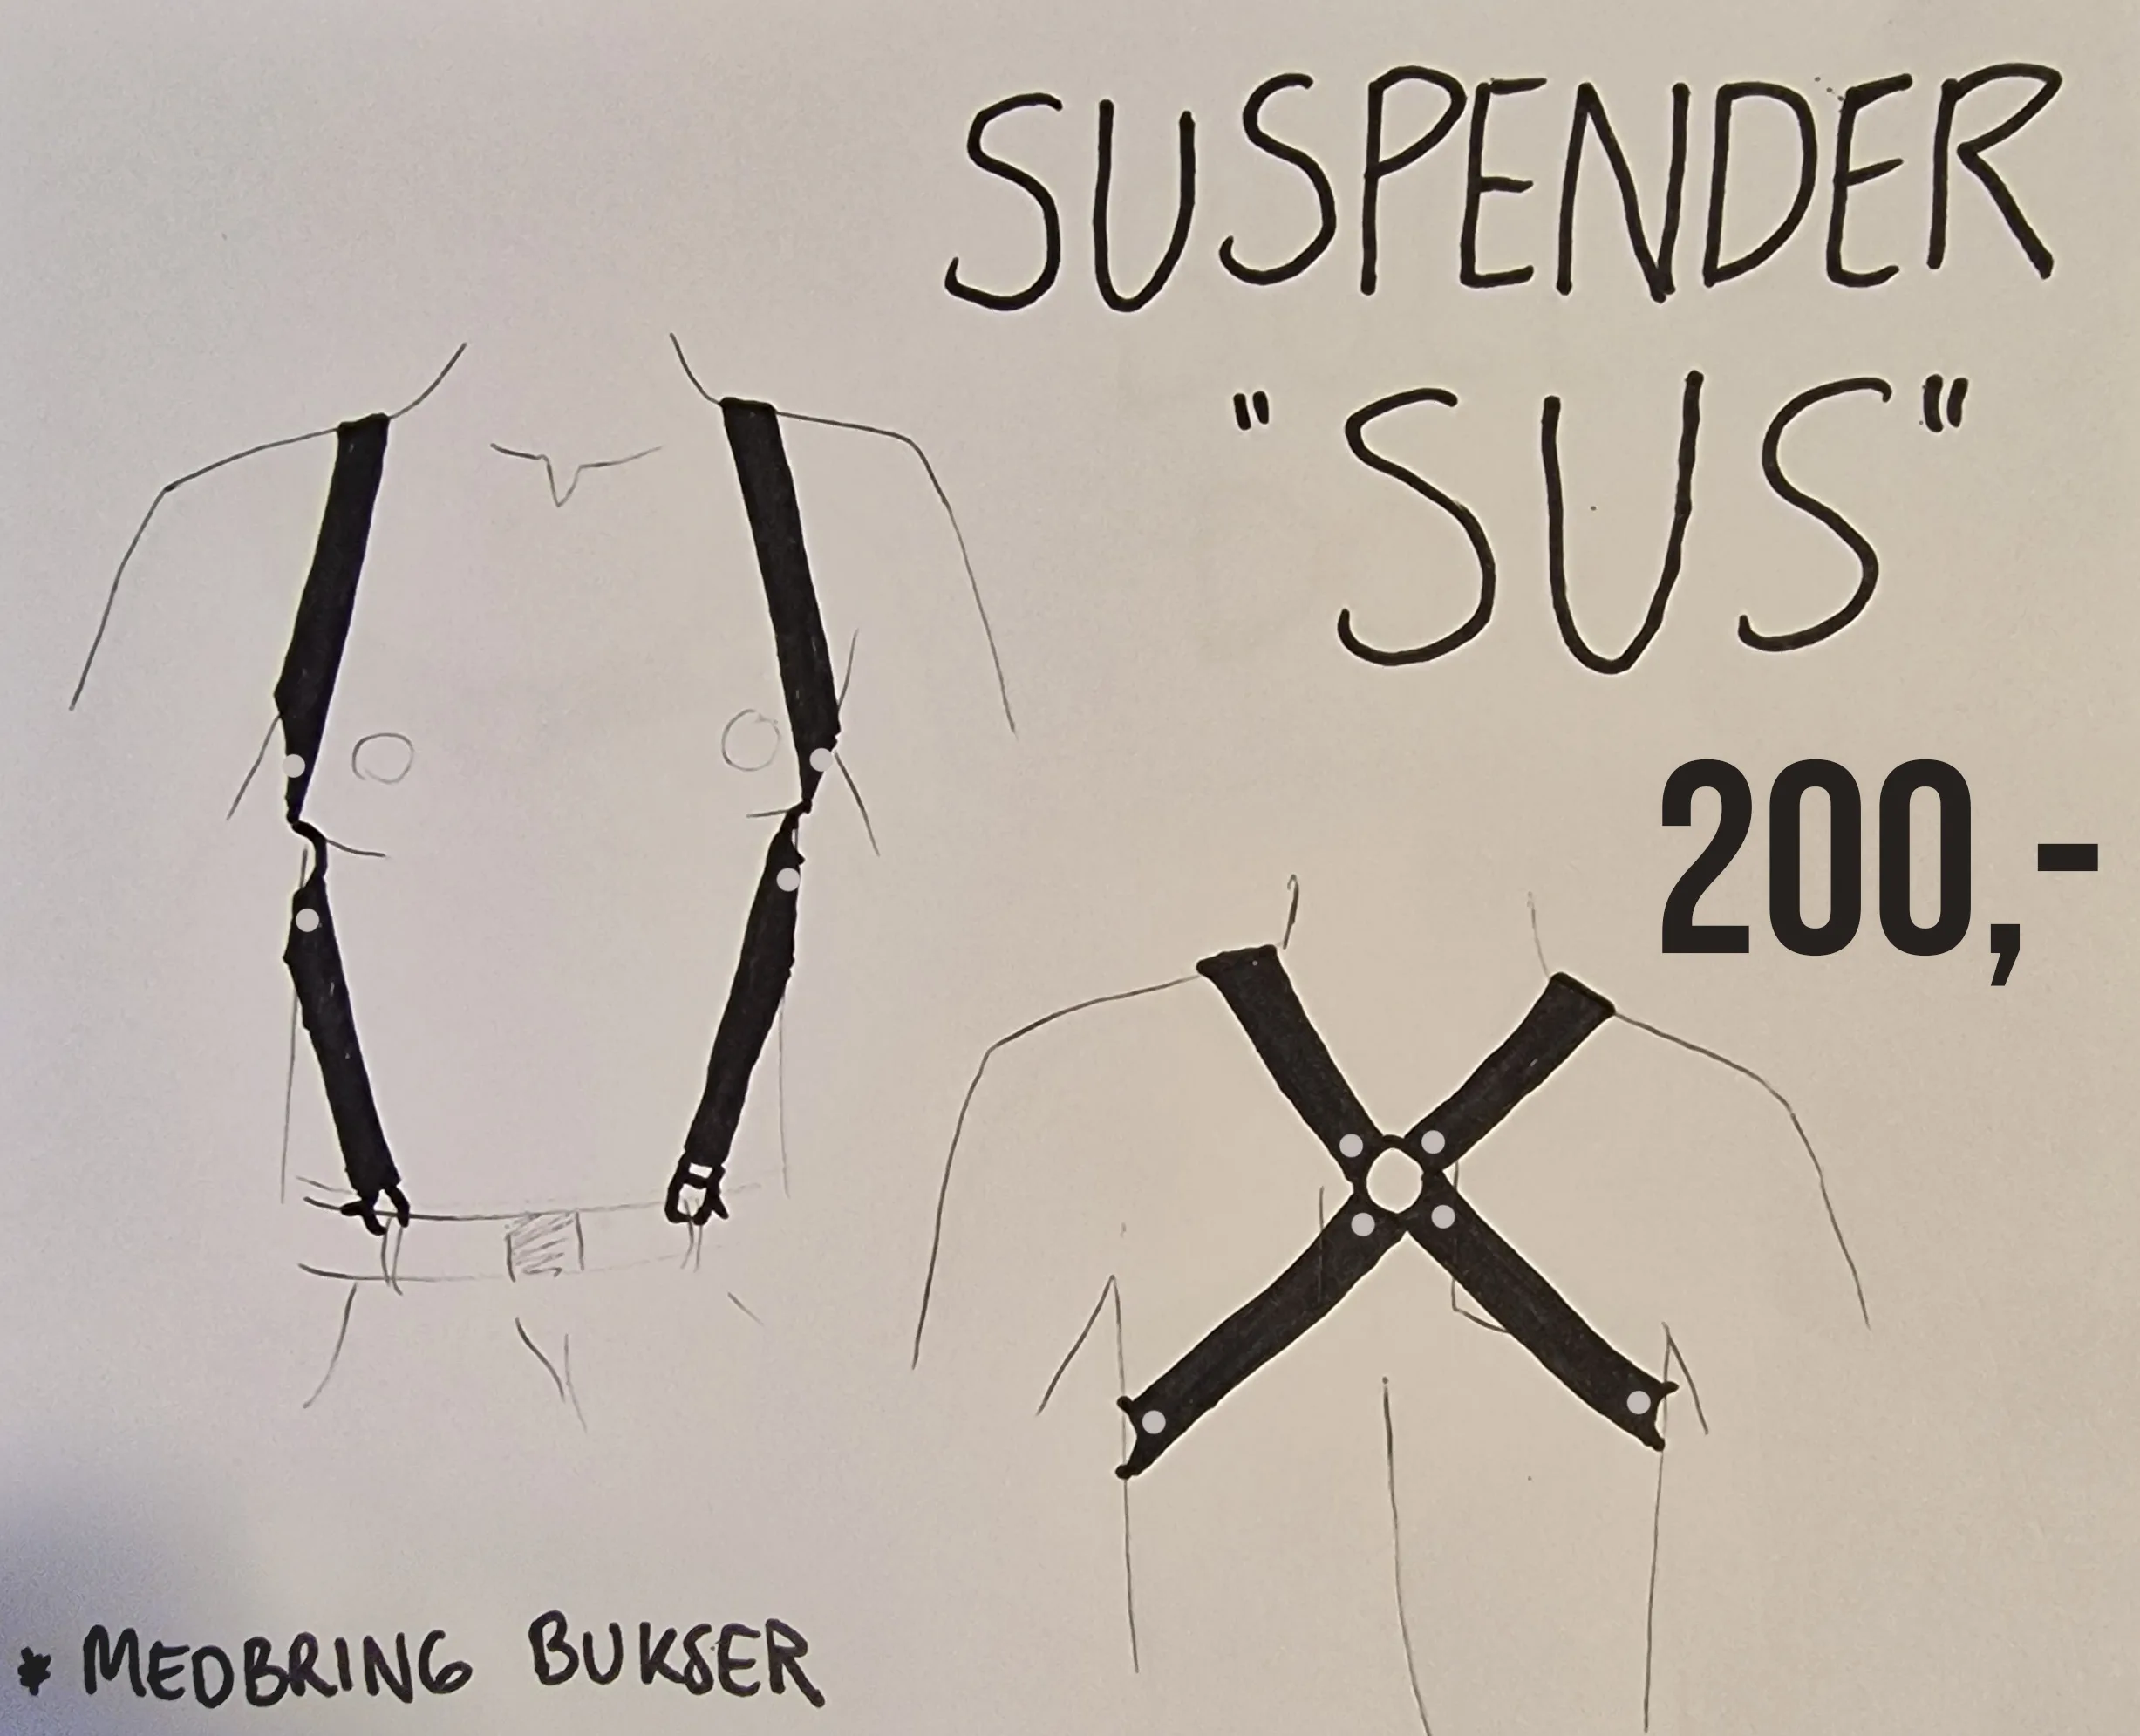 SUSPENDER
"SUS"
200,-
* MEDBRING BUKSER